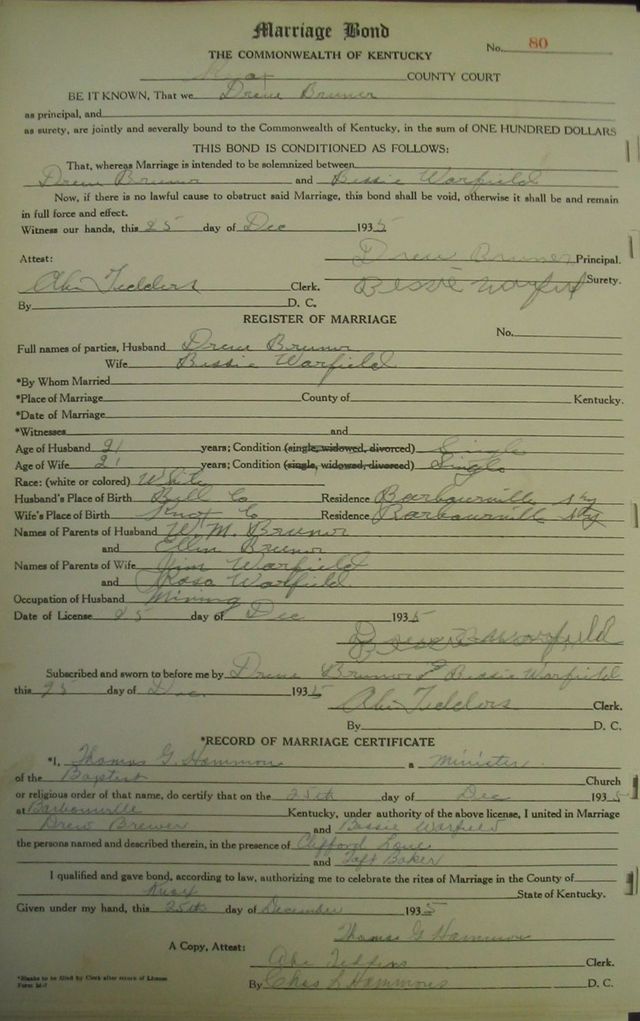 Marriage Bond
THE COMMONWEALTH OF KENTUCKY
No. 80
COUNTY COURT
BE IT KNOWN, That we Drew Bruner
as principal, and
as surety, are jointly and severally bound to the Commonwealth of Kentucky, in the sum of ONE HUNDRED DOLLARS
THIS BOND IS CONDITIONED AS FOLLOWS:
That, whereas Marriage is intended to be solemnized between
Drew Bruner and Bessie Warfield
Now, if there is no lawful cause to obstruct said Marriage, this bond shall be void, otherwise it shall be and remain
in full force and effect.
Witness our hands, this 25 day of Dec 1935
Attest: Drew Bruner Principal.
Abe Tedders Clerk. Bessie Warfield Surety.
By D. C.
REGISTER OF MARRIAGE
No.
Full names of parties, Husband Drew Bruner
Wife Bessie Warfield
*By Whom Married
*Place of Marriage County of Kentucky.
*Date of Marriage
*Witnesses and
Age of Husband 21 years; Condition (single, widowed, divorced) Single
Age of Wife 21 years; Condition (single, widowed, divorced) Single
Race: (white or colored) White
Husband's Place of Birth Bell Co Residence Barbourville Ky
Wife's Place of Birth Knox Co Residence Barbourville Ky
Names of Parents of Husband W. M. Bruner
and Ellen Bruner
Names of Parents of Wife Jim Warfield
and Rosa Warfield
Occupation of Husband Mining
Date of License 25 day of Dec 1935
Bessie Warfield
Subscribed and sworn to before me by Drew Bruner & Bessie Warfield
this 25 day of Dec. 1935
Abe Tedders Clerk.
By D. C.
*RECORD OF MARRIAGE CERTIFICATE
*I, Thomas G. Hammons a Minister
of the Baptist Church
or religious order of that name, do certify that on the 25th day of Dec 1935
at Barbourville Kentucky, under authority of the above license, I united in Marriage
Drew Brewer and Bessie Warfield
the persons named and described therein, in the presence of Clifford
and Taft Baker
I qualified and gave bond, according to law, authorizing me to celebrate the rites of Marriage in the County of
Knox State of Kentucky.
Given under my hand, this 25th day of December 1935
Thomas G Hammons
A Copy, Attest: Abe Tedders Clerk.
By Chas S Hammons D. C.
*Blanks to be filled by Clerk after return of License